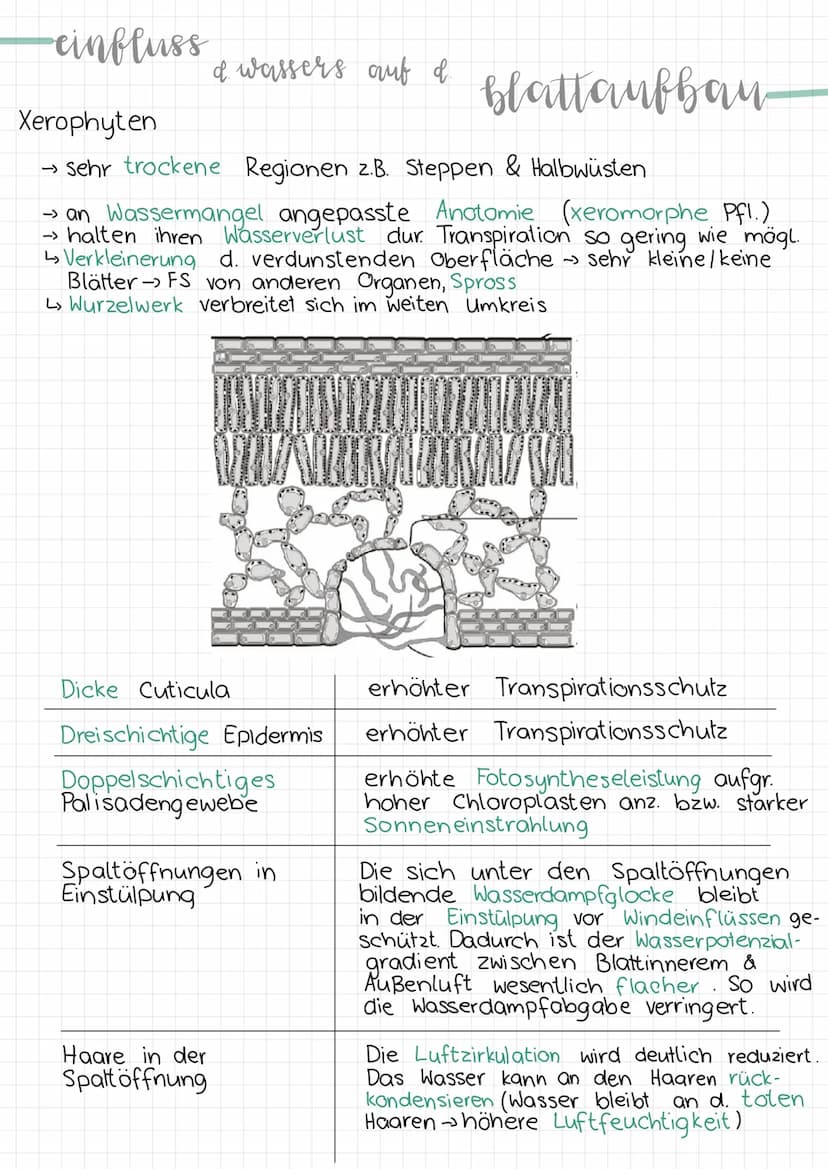 einfluss
d wassers auf d.
blattaufbau
Xerophyten
→ sehr trockene Regionen z.B. Steppen & Halbwüsten
→ an Wassermangel angepasste Anatomie (xeromorphe Pfl.)
→ halten ihren Wasserverlust dur. Transpiration so gering wie mögl.
↳ Verkleinerung d. verdunstenden Oberfläche → sehr kleine/keine
Blätter → FS von anderen Organen, Spross
↳ Wurzelwerk verbreitet sich im weiten Umkreis
Dicke Cuticula
erhöhter Transpirationsschutz
Dreischichtige Epidermis
erhöhter Transpirationsschutz
Doppelschichtiges
Palisadengewebe
erhöhte Fotosyntheseleistung aufgr.
hoher Chloroplasten anz. bzw. starker
Sonneneinstrahlung
Spaltöffnungen in
Einstülpung
Die sich unter den Spaltöffnungen
bildende Wasserdampfglocke bleibt
in der Einstülpung vor Windeinflüssen ge-
schützt. Dadurch ist der Wasserpotenzial-
gradient zwischen Blattinnerem &
Außenluft wesentlich flacher. So wird
die Wasserdampfabgabe verringert.
Haare in der
Spaltöffnung
Die Luftzirkulation wird deutlich reduziert.
Das Wasser kann an den Haaren rück-
kondensieren (Wasser bleibt an d. toten
Haaren → höhere Luftfeuchtigkeit)